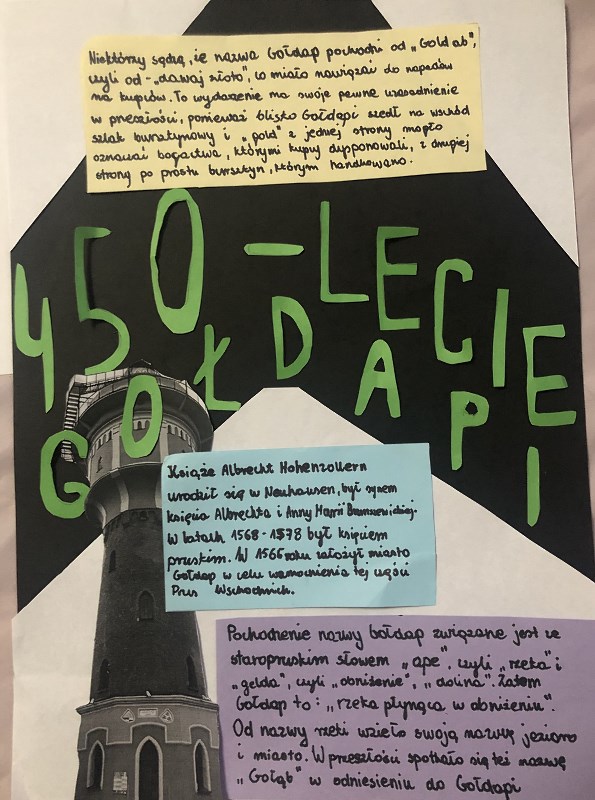 Niektórzy sądzą, że nazwa Gołdap pochodzi od „Gold ab",
czyli od - „dawaj złoto", co miało nawiązać do napadów
na kupców. To wydarzenie ma swoje pewne uzasadnienie
w przeszłości, ponieważ blisko Gołdapi szedł na wschód
szlak bursztynowy i „gold" z jednej strony mogło
oznaczać bogactwa, którymi kupcy dysponowali, z drugiej
strony po prostu bursztyn, którym handlowano.
450-LECIE
GOŁDAPI
Książe Albrecht Hohenzollern
urodził się w Neuhausen, był synem
księcia Albrechta i Anny Marii Brunszwickiej.
W latach 1568-1578 był księciem
pruskim. W 1566 roku założył miasto
Gołdap w celu wzmocnienia tej części
Prus Wschodnich.
Pochodzenie nazwy Gołdap związane jest ze
staropruskim słowem „ape", czyli „rzeka" i
„gelda", czyli „obniżenie", „dolina". Zatem
Gołdap to: „rzeka płynąca w obniżeniu".
Od nazwy rzeki wzięło swoją nazwę jezioro
i miasto. W przeszłości spotkało się też nazwę
„Gołąb" w odniesieniu do Gołdapi